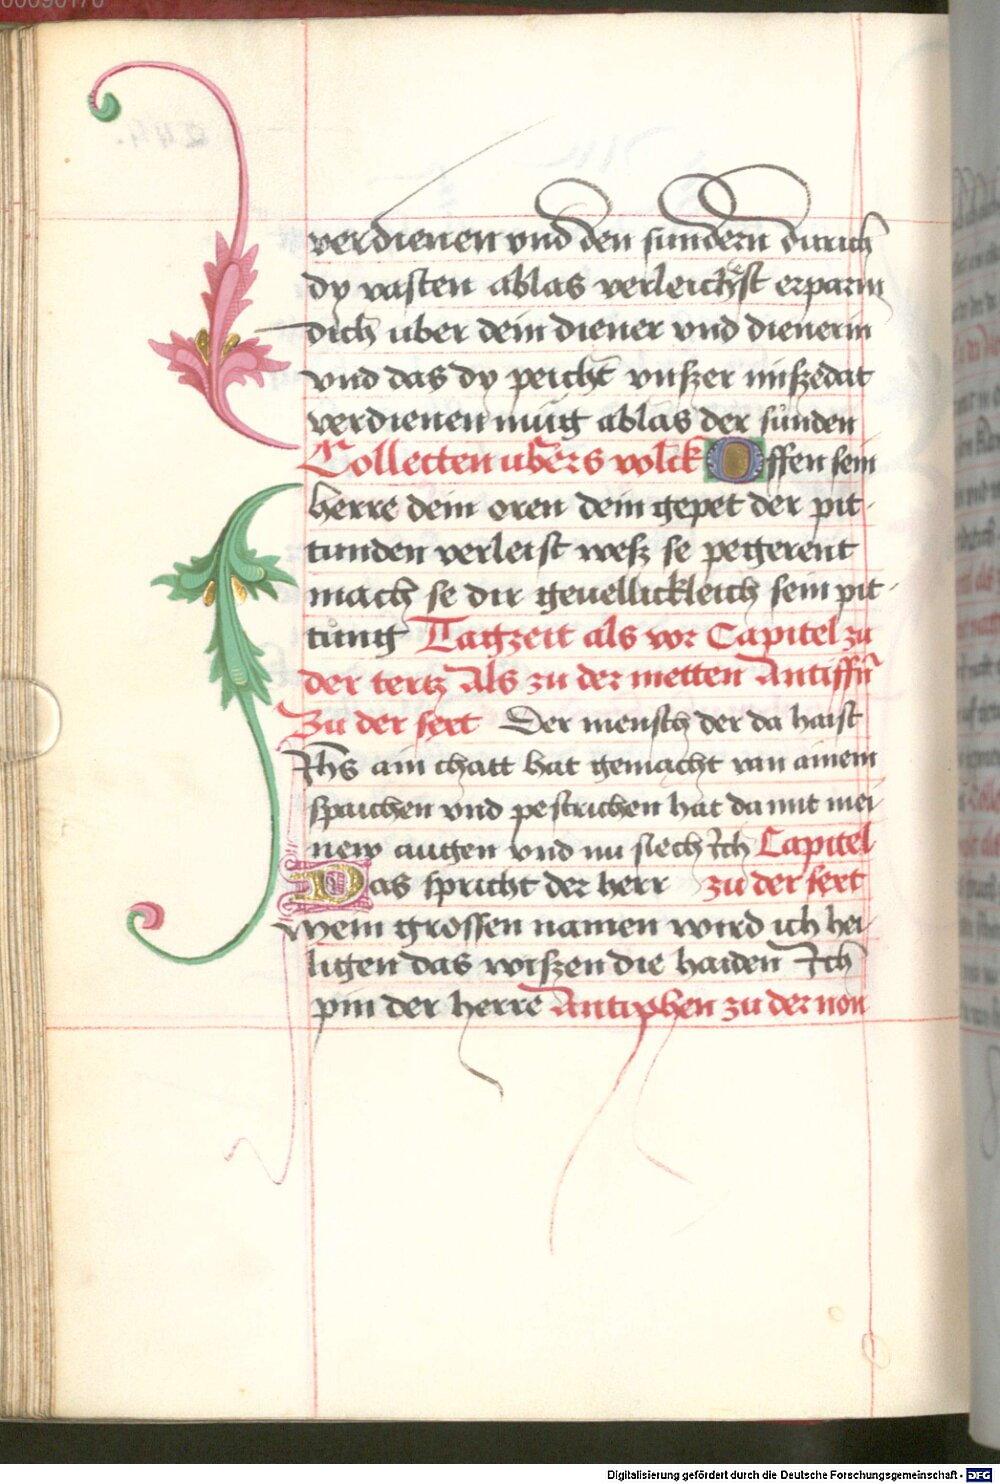 00090170
verdienen vnd den sundern durich
dy vasten ablas verleichst erparm
dich uber dein diener vnd dienerin
vnd das dy peicht vnszer miszedat
verdienen mug ablas der sunden
Collecten ubers volck Offen sein
herre dein oren dem gepet der pit-
tunden verleist wesz se pegerent
mach se dir geuellickleich sein pit-
tung Tagzeit als vor Capitel zu
der tertz Als zu der metten Antiffn
Zu der sext Der mensch der da haist
Jhs ain chatt hat gemacht van ainem
spaichen vnd pestrichen hat damit mei
new augen vnd nu siech Ich Capitel
Das spricht der herr zu der sext
mein grossen namen wird ich hei
ligen das wiszen die haiden Ich
pin der herre Antiphen zu der non
Digitalisierung gefördert durch die Deutsche Forschungsgemeinschaft - DFG